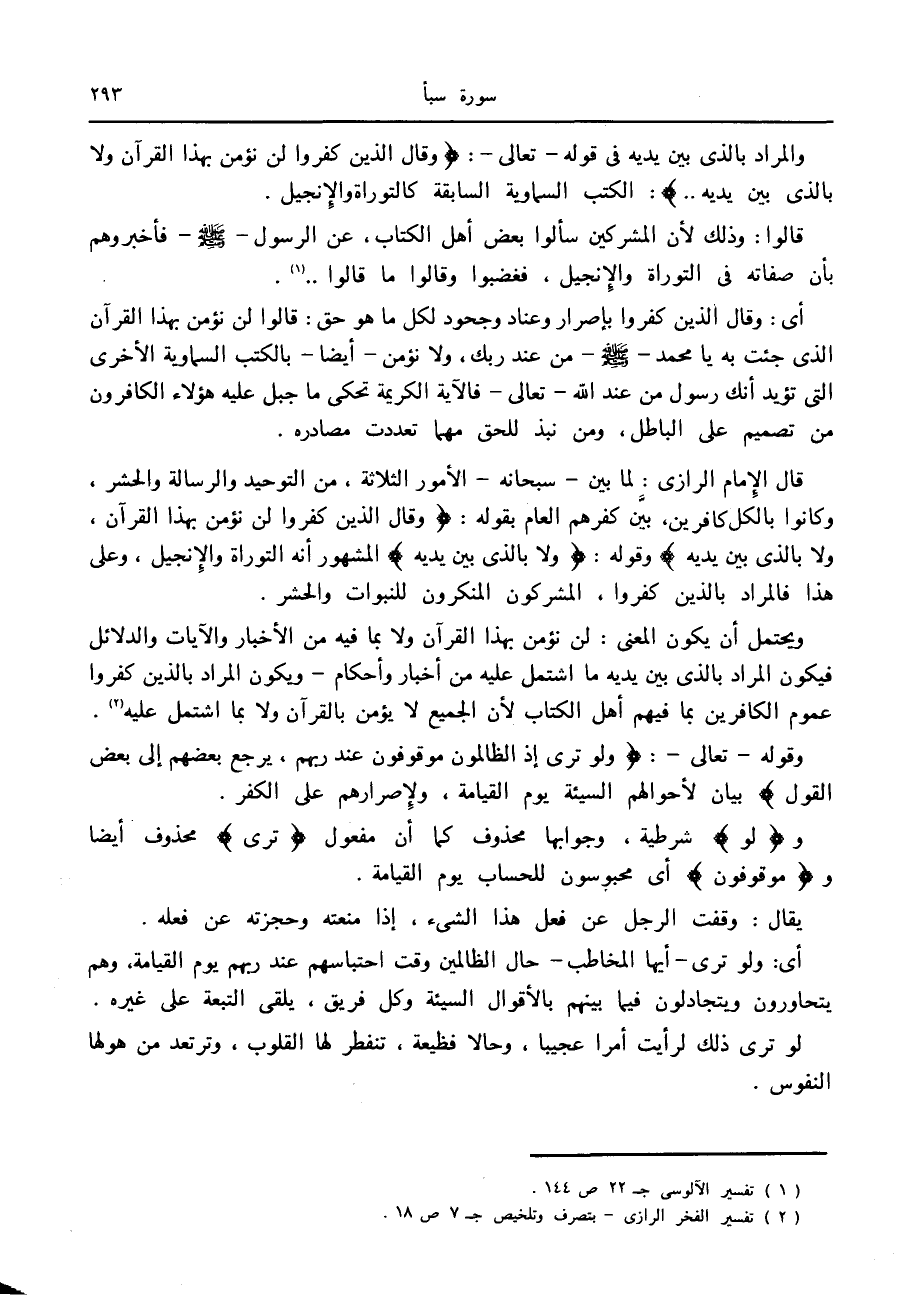 سورة سبأ ٢٩٣
والمراد بالذى بين يديه فى قوله - تعالى - : ﴿ وقال الذين كفروا لن نؤمن بهذا القرآن ولا
بالذى بين يديه .. ﴾ : الكتب السماوية السابقة كالتوراة والإنجيل .
قالوا : وذلك لأن المشركين سألوا بعض أهل الكتاب ، عن الرسول - ﷺ - فأخبروهم
بأن صفاته فى التوراة والإنجيل ، فغضبوا وقالوا ما قالوا ..(١) .
أى : وقال الذين كفروا بإصرار وعناد وجحود لكل ما هو حق : قالوا لن نؤمن بهذا القرآن
الذى جئت به يا محمد - ﷺ - من عند ربك ، ولا نؤمن - أيضا - بالكتب السماوية الأخرى
التى تؤيد أنك رسول من عند الله - تعالى - فالآية الكريمة تحكى ما جبل عليه هؤلاء الكافرون
من تصميم على الباطل ، ومن نبذ للحق مهما تعددت مصادره .
قال الإمام الرازى : لما بين - سبحانه - الأمور الثلاثة ، من التوحيد والرسالة والحشر ،
وكانوا بالكل كافرين ، بيَّن كفرهم العام بقوله : ﴿ وقال الذين كفروا لن نؤمن بهذا القرآن ،
ولا بالذى بين يديه ﴾ وقوله : ﴿ ولا بالذى بين يديه ﴾ المشهور أنه التوراة والإنجيل ، وعلى
هذا فالمراد بالذين كفروا ، المشركون المنكرون للنبوات والحشر .
ويحتمل أن يكون المعنى : لن نؤمن بهذا القرآن ولا بما فيه من الأخبار والآيات والدلائل
فيكون المراد بالذى بين يديه ما اشتمل عليه من أخبار وأحكام - ويكون المراد بالذين كفروا
عموم الكافرين بما فيهم أهل الكتاب لأن الجميع لا يؤمن بالقرآن ولا بما اشتمل عليه(٢) .
وقوله - تعالى - : ﴿ ولو ترى إذ الظالمون موقوفون عند ربهم ، يرجع بعضهم إلى بعض
القول ﴾ بيان لأحوالهم السيئة يوم القيامة ، ولإصرارهم على الكفر .
و ﴿ لو ﴾ شرطية ، وجوابها محذوف كما أن مفعول ﴿ ترى ﴾ محذوف أيضا
و ﴿ موقوفون ﴾ أى محبوسون للحساب يوم القيامة .
يقال : وقفت الرجل عن فعل هذا الشىء ، إذا منعته وحجزته عن فعله .
أى : ولو ترى - أيها المخاطب - حال الظالمين وقت احتباسهم عند ربهم يوم القيامة ، وهم
يتحاورون ويتجادلون فيما بينهم بالأقوال السيئة وكل فريق ، يلقى التبعة على غيره .
لو ترى ذلك لرأيت أمرا عجيبا ، وحالا فظيعة ، تنفطر لها القلوب ، وترتعد من هولها
النفوس .
( ١ ) تفسير الآلوسى جـ ٢٢ ص ١٤٤ .
( ٢ ) تفسير الفخر الرازى - بتصرف وتلخيص جـ ٧ ص ١٨ .